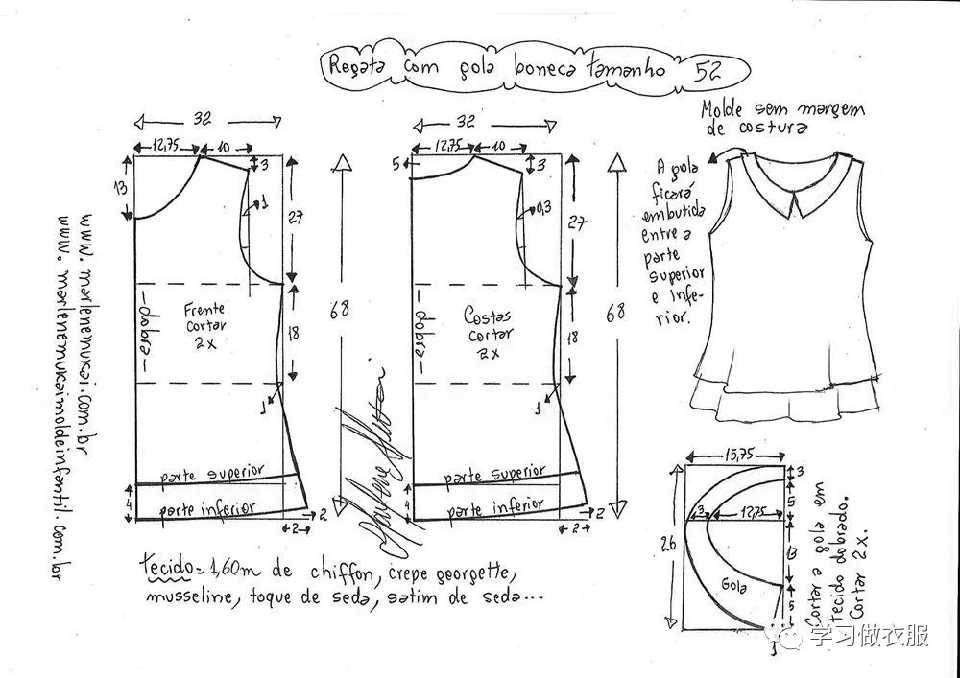 Regata com gola boneca tamanho 52
Molde sem margem
de costura
32
12,75
10
3
13
1
27
18
68
Frente
cortar
2x
—dobra—
1
parte superior
4
parte inferior
2
2
32
5
12,75
10
3
0,3
27
18
68
Costas
cortar
2x
—dobra—
1
parte superior
4
parte inferior
2
2
A gola
ficará
embutida
entre a
parte
superior
e infe-
rior.
www.marlenemukai.com.br
www.marlenemukaimoldeinfantil.com.br
tecido= 1,60m de chiffon, crepe georgette,
musseline, toque de seda, satim de seda...
15,75
3
5
3
12,75
26
13
Gola
5
1
Cortar a gola em
tecido dobrado.
Cortar 2x.
学习做衣服